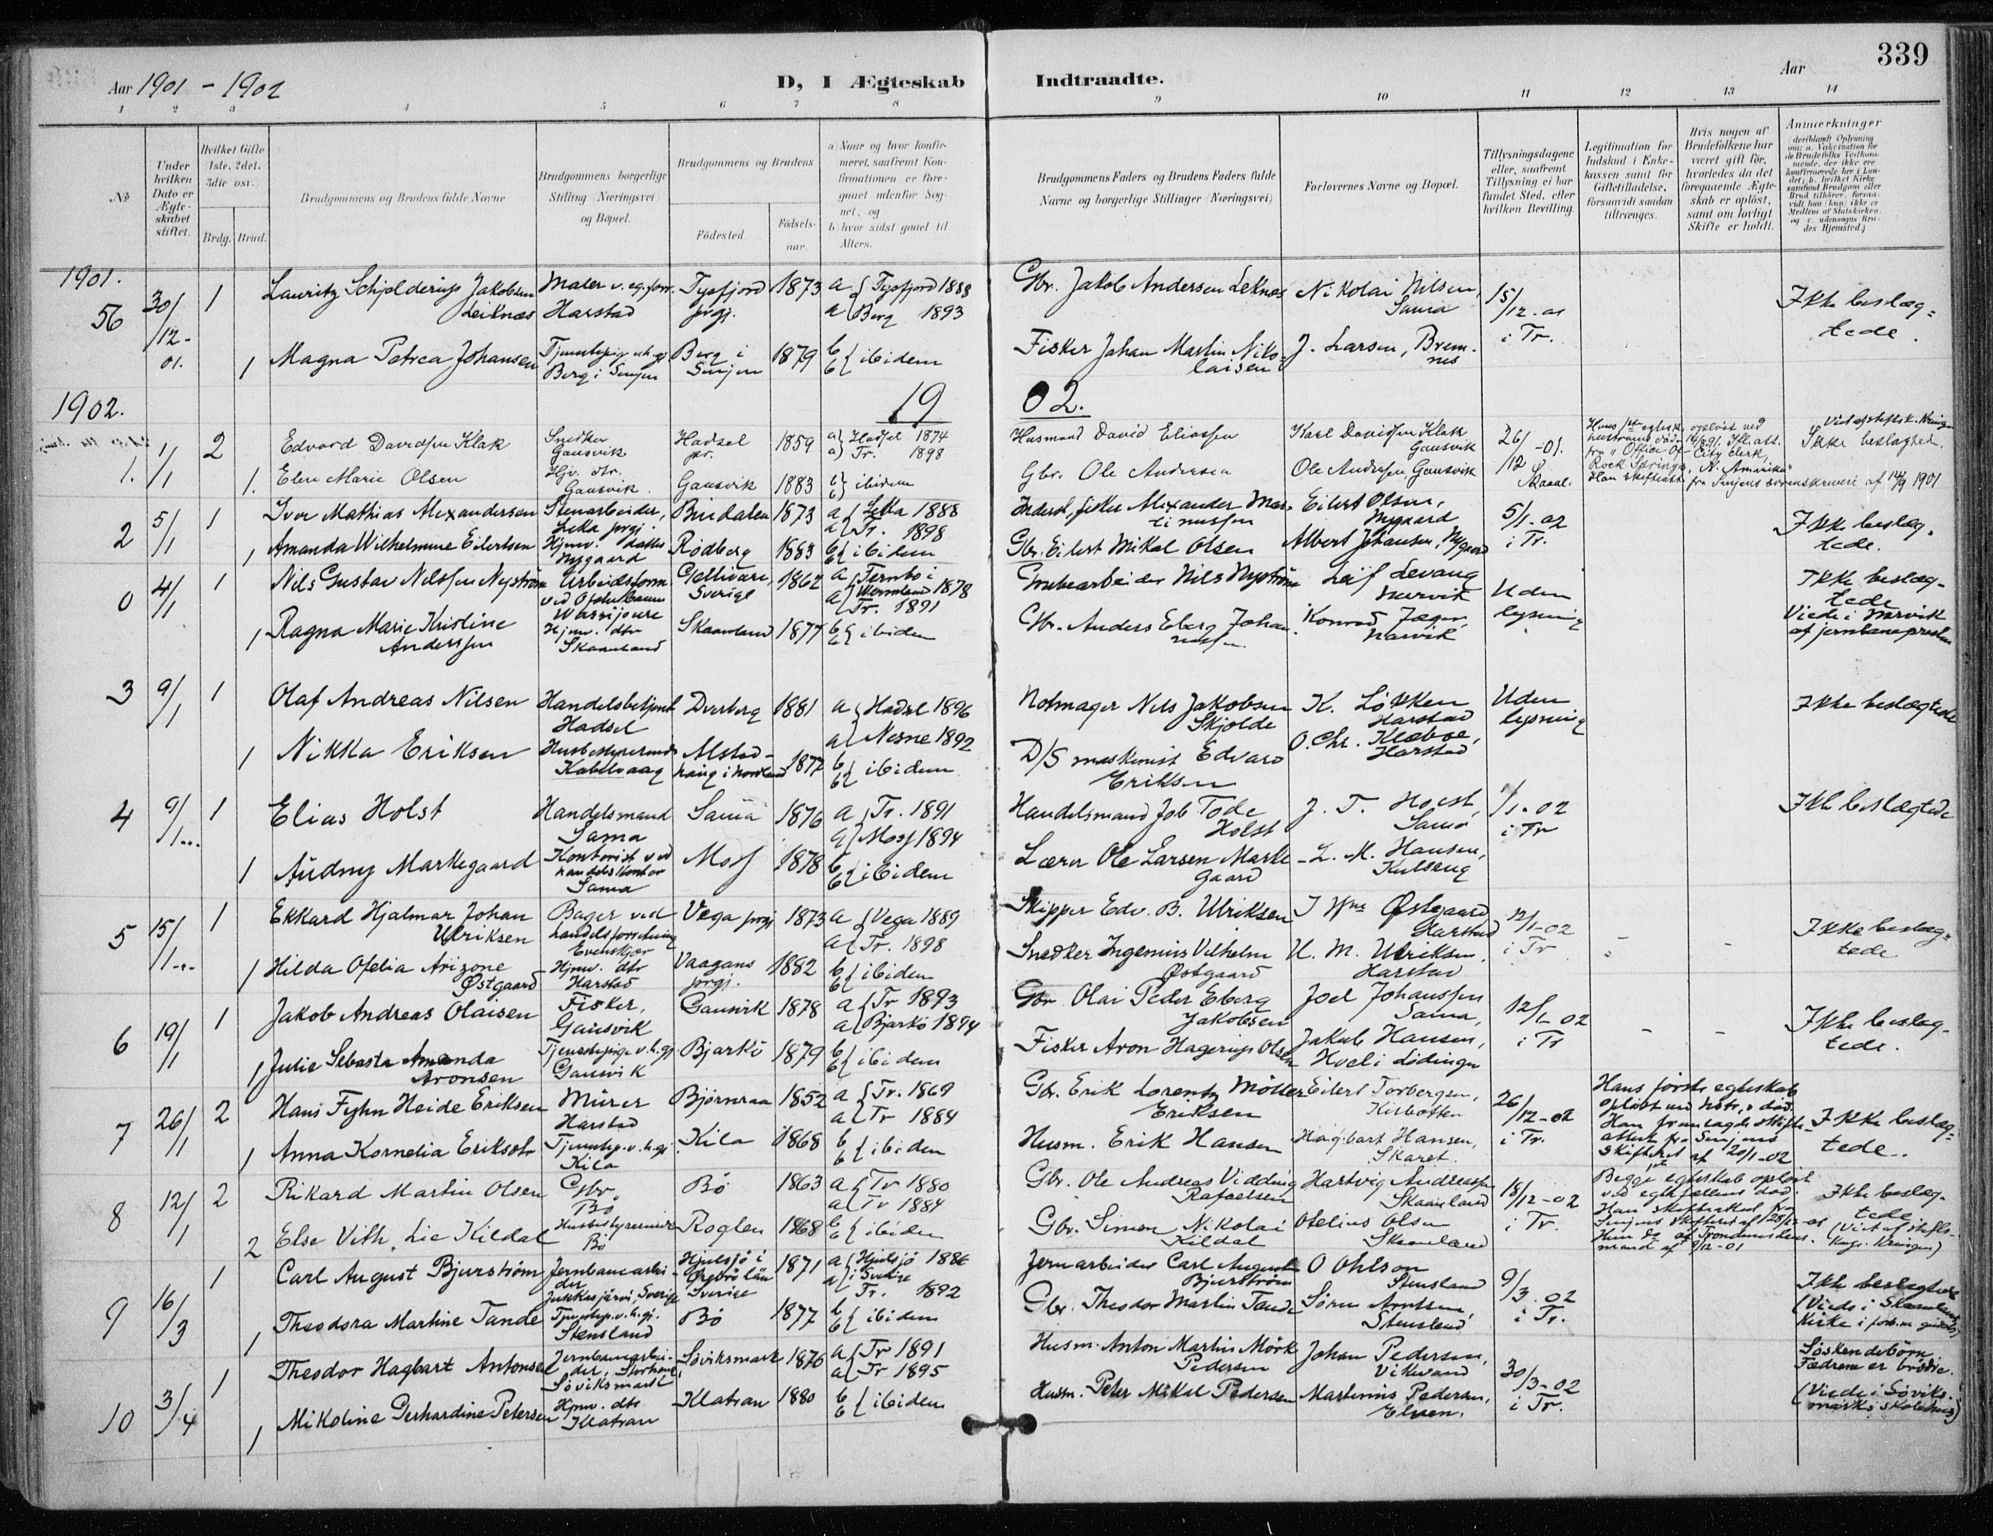 339
Aar 1901 - 1902
D, I Ægteskab Indtraadte.
Aar
1 2 3 4 5 6 7 8 9 10 11 12 13 14
No
Under hvilken Dato er Ægteskabet stiftet.
Hvilket Gifte (1ste, 2det, 3die osv.)
Brdg. Brud.
Brudgommens og Brudens fulde Navne
Brudgommens borgerlige Stilling (Næringsvei) og Bopæl.
Brudgommens og Brudens
Fødested
Fødselsaar.
a) Naar og hvor konfirmeret, saafremt Konfirmationen er foregaaet udenfor Sognet, og
b) hvor sidst gaaet til Alters.
Brudgommens Faders og Brudens Faders fulde Navne og borgerlige Stillinger (Næringsvei)
Forlovernes Navne og Bopæl.
Tillysningsdagene eller, saafremt Tillysning ei har fundet Sted, efter hvilken Bevilling.
Legitimation for Indskud i Enkekassen samt for Giftetilladelse, forsaavidt saadan tiltrænges.
Hvis nogen af Brudefolkene har været gift før, hvorledes da det foregaaende Ægteskab er opløst, samt om lovligt Skifte er holdt.
Anmærkninger
1901.
56 30/12-01. 1 Lauritz Schjelderup Jakobsen Leiknæs Maler v. eg. forr. Harstad Tysfjord prgj. 1873 a Tysfjord 1888 a Berg 1893 Gbr. Jakob Andersen Leknes Nikolai Nilsen, Sama 15/12-01 i Tr. Ikke beslægtede.
1 Magna Petrea Johansen Berg i Senjen Berg i Senjen 1879 b ibidem Fisker Johan Martin Nikolaisen J. Larsen, Bremnes
1902.
1902.
1. 1/1 2 Edvard Davidsen Klak Snedker Gausvik Hadsel pr. 1859 a) Hadsel 1874 a) Tr. 1898 Husmand David Eliassen Karl Davidsen Klak Gausvik 26/12-01. Skaanl. Ikke beslægtede.
1. Elen Marie Olsen Hjv. dtr. Gausvik Gausvik 1883 b) ibidem Gbr. Ole Andersen Ole Andersen Gausvik
2 5/1 1 Iver Mathias Alexandersen Stenarbeider, Leka prgj. Bindalen 1873 a Leka 1888 a Tr. 1898 Inderst, fisker Alexander Martinussen Eilert Olsen, Nygaard 5/1-02 i Tr. Ikke beslægtede.
1 Amanda Wilhelmine Eilertsen Hjmv. datter Nygaard Rødberg 1883 b ibidem Gbr. Eilert Mikal Olsen Albert Johansen, Nygaard
0 4/1 1 Nils Gustav Nilssen Nyström Arbeidsform. ved Ofotenbanen Wassijaure Gellivare, Sverige 1862 a Wermland 1878 a Tr. 1891 Grubearbeider Nils Nyström Leif Levang Narvik Uden lysning Ikke beslægtede Viede i Narvik af jernbanepresten
1 Ragna Marie Kristine Anderssen Hjmv. dtr Skaanland Skaanland 1877 b ibidem Gbr. Anders Eberg Johannessen Konrad Jæger, Narvik
3 9/1 1 Olaf Andreas Nilsen Handelsbetjent Hadsel Dverberg 1881 a Hadsel 1896 a Nesne 1892 Notmager Nils Jakobsen Skjolde K. Løkken Harstad Uden lysning Ikke beslægtede
1 Nikka Eriksen Husbestyrerinde Kabelvaag Alstadhaug i Nordland 1877 b ibidem D/S maskinist Edvard Eriksen O. Chr. Klæboe, Harstad
4 9/1 1 Elias Holst Handelsmand Sama Sama 1876 a Tr. 1891 a Moss 1894 Handelsmand Job Tode Holst J. T. Holst, Sama /1-02 i Tr Ikke beslægtede
1 Audny Markegaard Kontorist ved handelskontor Sama Moss 1878 b ibidem Lærer Ole Larsen Markegaard L. M. Hansen, Kulseng
5 15/1 1 Ekkard Hjalmar Johan Ulriksen Bager ved handelsforretning Evenskjær Vega prgj 1873 a Vega 1889 a Tr. 1898 Skipper Edv. B. Ulriksen J Wm Østgaard Harstad 12/1-02 i Tr Ikke beslægtede
1 Hilda Ofelia Arizone Østgaard Hjmv. dtr Harstad Vaagans prgj. 1882 b ibidem Snedker Ingenius Vilhelm Østgaard U. M. Ulriksen, Harstad
6 19/1 1 Jakob Andreas Olaisen Fisker, Gausvik Gausvik 1878 a Tr 1893 a Bjarkø 1894 Gbr. Olai Peder Eberg Jakobsen Joel Johanssen Sama, 12/1-02 i Tr Ikke beslægtede.
1 Julie Sebasta Amanda Aronsen Tjenestepige v. h. gj Gausvik Bjarkø 1879 b ibidem Fisker Aron Hagerup Olsen Jakob Hansen, Hvel i Lødingen
7 26/1 2 Hans Fyhn Heide Eriksen Murer Harstad Bjørnraa 1852 a Tr. 1869 a Tr 1884 Gbr. Erik Lorentz Møller Eriksen Eilert Torbergsen, Kilbotten 26/12-02 i Tr. Hans første egteskab opløst ved hstr.s død. Ikke beslægtede.
1 Anna Kornelia Eriksdtr Tjenstep. v. h. gj Kila Kila 1868 b ibidem Husm. Erik Hansen Hagbart Hansen, Skaret.
8 12/1 2 Rikard Martin Olsen Gbr. Bø Bø 1863 a Tr 1880 a Tr 1884 Gbr. Ole Andreas Vidding Rafaelsen Hartvig Andreassen Skaanland 18/12-02 i Tr. Begges egteskab opløst ved egtefællens død. Ikke beslægtede
2 Else Vilh. Lie Kildal Husbestyrerinde Bø Roglen 1868 b ibiden Gbr. Simon Nikolai Kildal Ofelius Olsen Skaanland
9 16/3 1 Carl August Bjurström Jernbanearbeider Jukkasjärvi, Sverige Hjulsjö i Örebro län Sverige 1871 a Hjulsjö i Sverige 1886 a Tr. 1892 Jernarbeider Carl August Bjurström O Ohlson Stensland 9/3.02 i Tr. Ikke beslægtede
1 Theodora Martine Tande Tjenstep. v. h. gj. Stensland Bø 1877 b ibidem Gbr. Theodor Martin Tande Søren Arntsen, Stensland
10 3/4 1 Theodor Hagbart Antonsen Jernbanearbeider, Søviksmark Søviksmark 1876 a Tr 1891 a Tr 1895 Husm. Anton Martin Mörk Pedersen Johan Pedersen, Vikevand 30/3-02 i Tr. Søskendebörn Fædrene er brødre. (Viede i Søviksmarks skolehus)
1 Mikoline Gerhardine Petersen Hjmv. dtr Klatran Klatran 1880 b ibidem Husm. Peter Mikal Pedersen Martinius Pedersen, Elven.